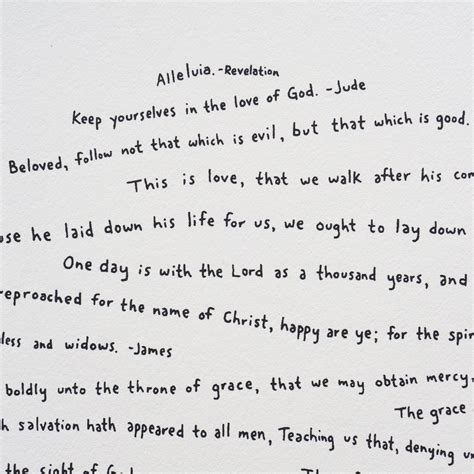 Alleluia. -Revelation
Keep yourselves in the love of God. -Jude
Beloved, follow not that which is evil, but that which is good.
This is love, that we walk after his com
use he laid down his life for us, we ought to lay down
One day is with the Lord as a thousand years, and
reproached for the name of Christ, happy are ye; for the spir
less and widows. -James
boldly unto the throne of grace, that we may obtain mercy,
The grace
h salvation hath appeared to all men, Teaching us that, denying un
the sight of